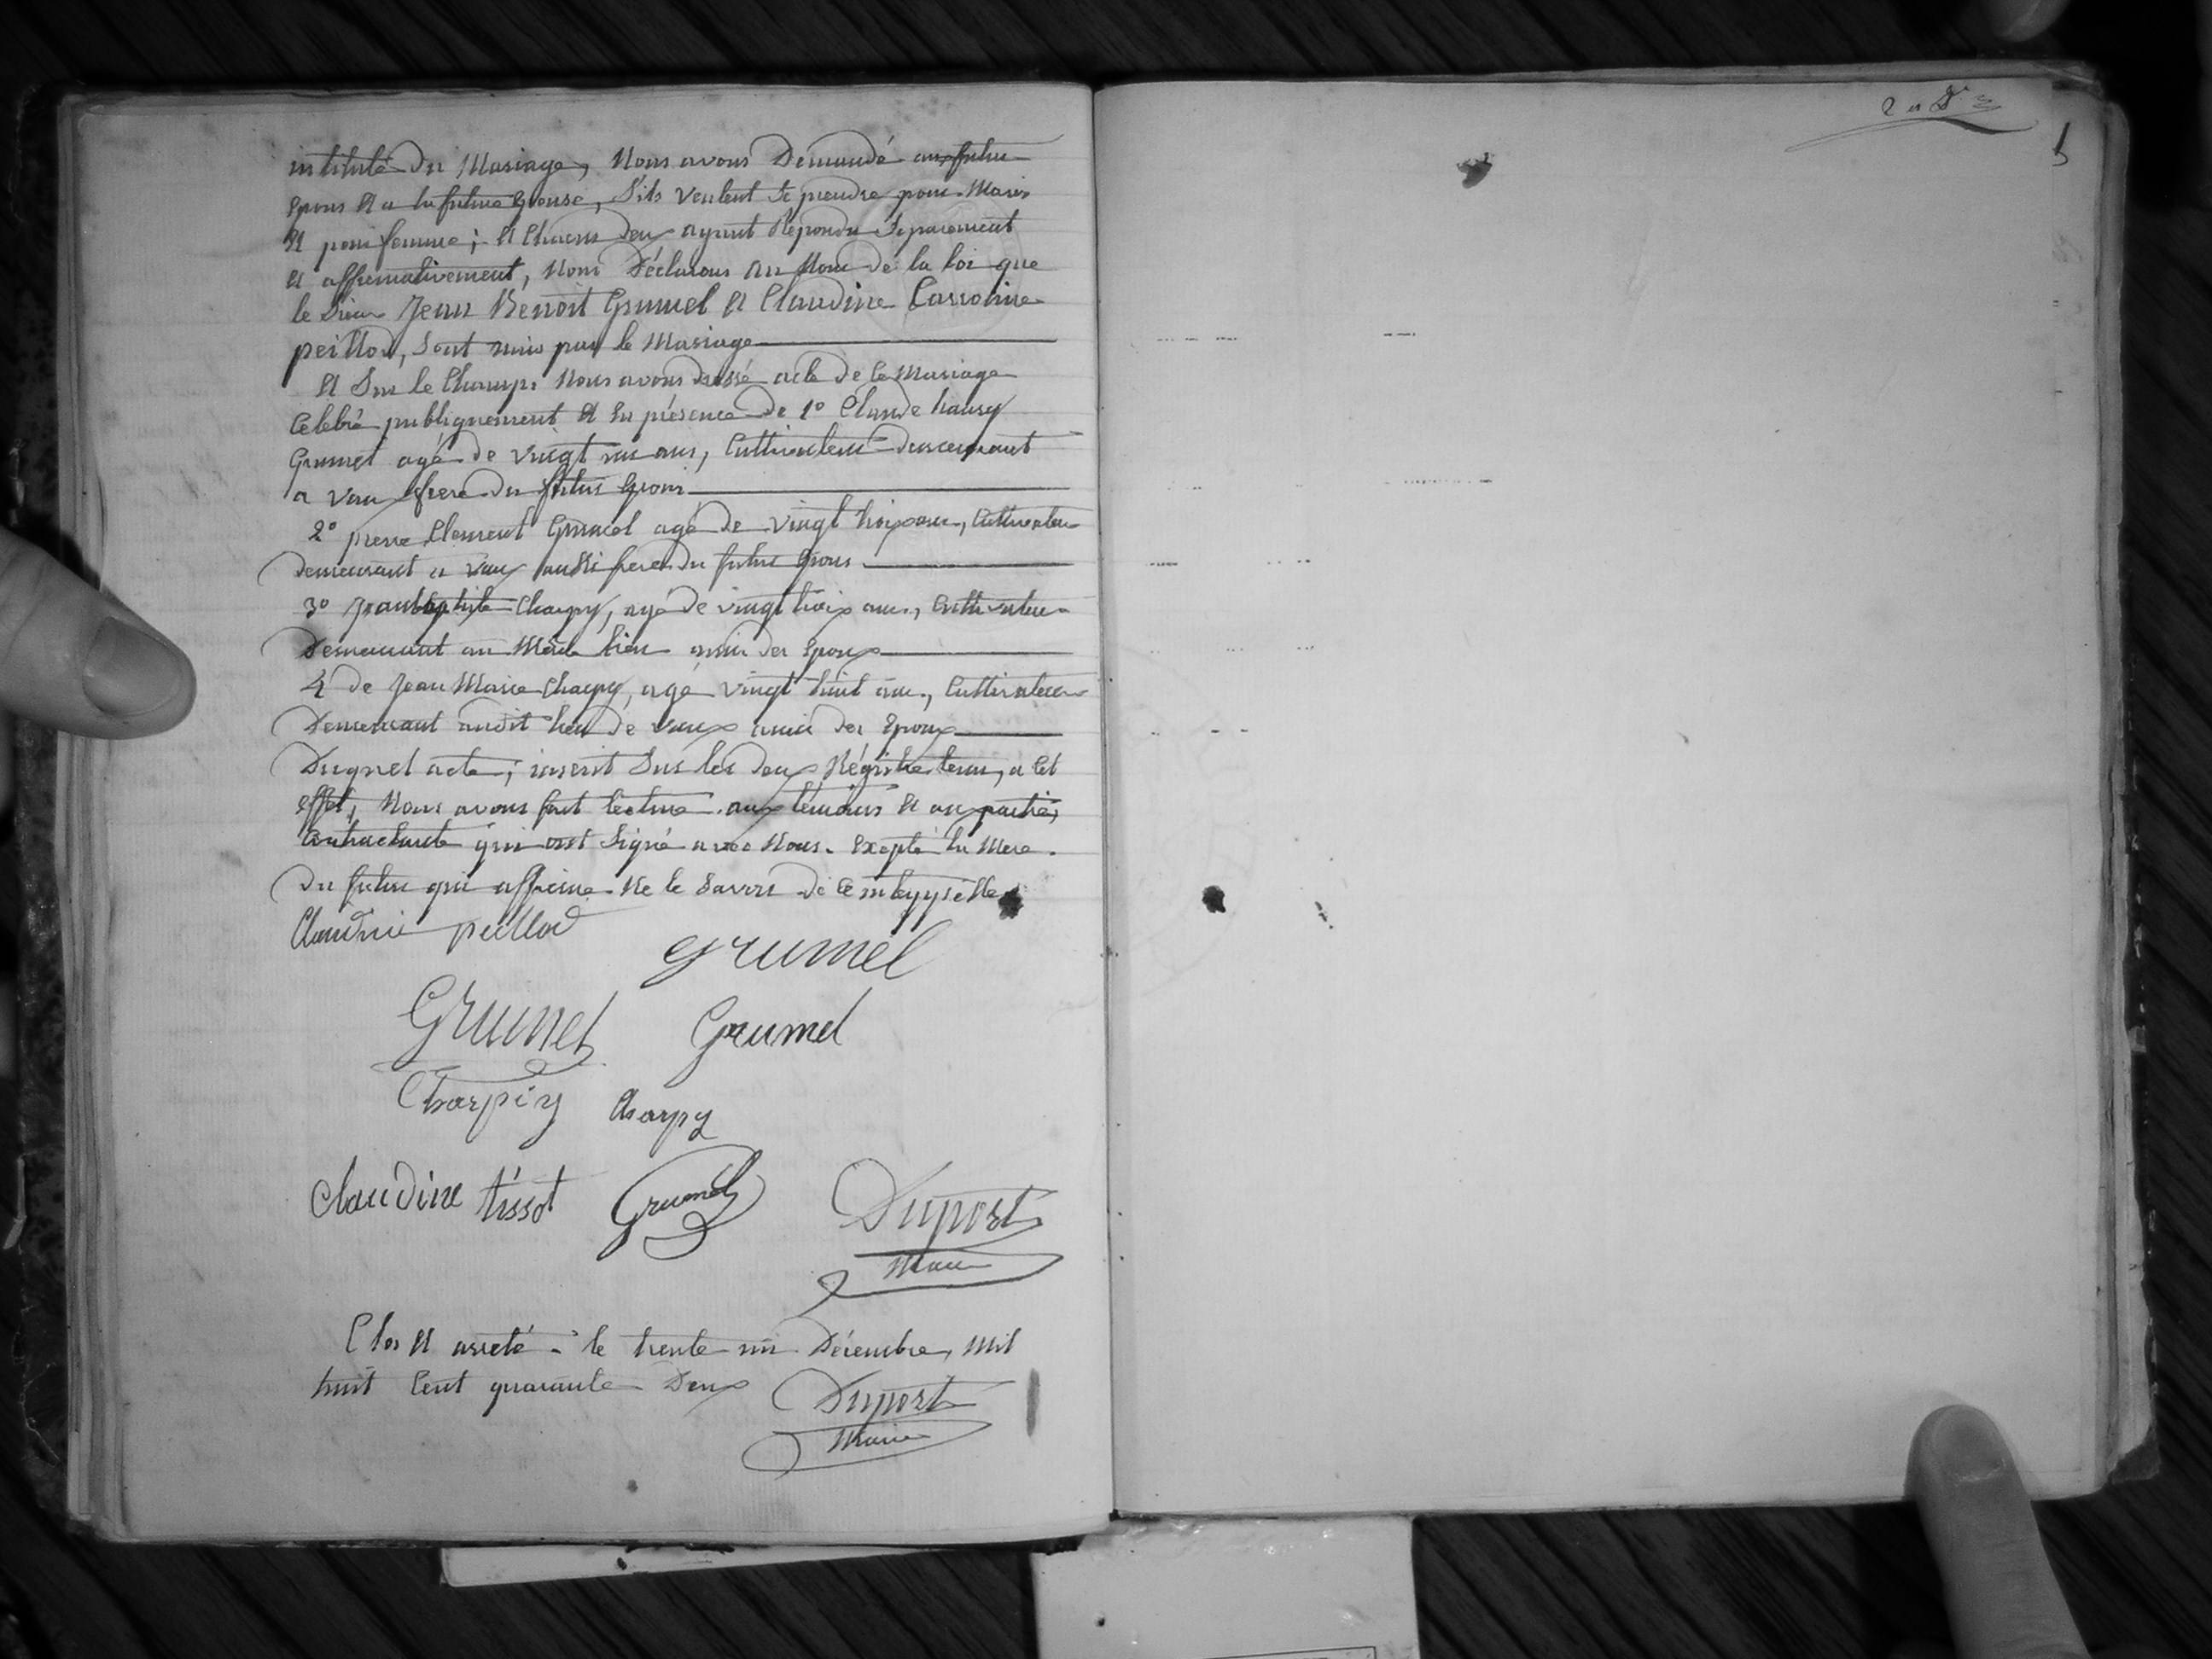 intitulé du Mariage, Nous avons Demandé aux futur
Epous et a la future Epouse, S'ils veulent se prendre pour Maris
et pour femme; et Chacun deux ayant Répondu Separement
et affirmativement, Nous Déclarons au Nom de la loi que
le Sieur Jean Benoit Grumel et Claudine Carroline
peillod, Sont unis par le Mariage
et Sur le Champs Nous avons dressé acte de Ce Mariage
Celebré publiquement et En présence de 1° Claude
Grumel agé de vingt un ans, Cultivateur demeurant
a Vaux frere du futur Epoux
2° pierre Clement Grumel agé de vingt trois ans, Cultivateur
Demeurant a Vaux aussi frere du futur Epous
3° Jean baptiste Charpy, agé de vingt trois ans, Cultivateur
Demeurant au Même lieu amis des Epoux
4 de Jean Marie Charpy, agé vingt huit ans, Cultivateur
Demeurant audit lieu de Vaux amis des Epoux
Duquel acte; inscrit Sur les deux Régistre tenu, a Cet
effet, Nous avons fait lecture aux témoins et aux parties
Contractante qui ont Signé avec Nous. Excepté la Mere
du futur qui affirme Ne le Savoir de Ce
Claudine peillod
grumel
Grumel Grumel
Charpiy Charpy
Claudine tissot Grumel Dupost
Maire
Clos et arreté le trente un Décembre, Mil
huit Cent quarante Deux Dupost
Maire